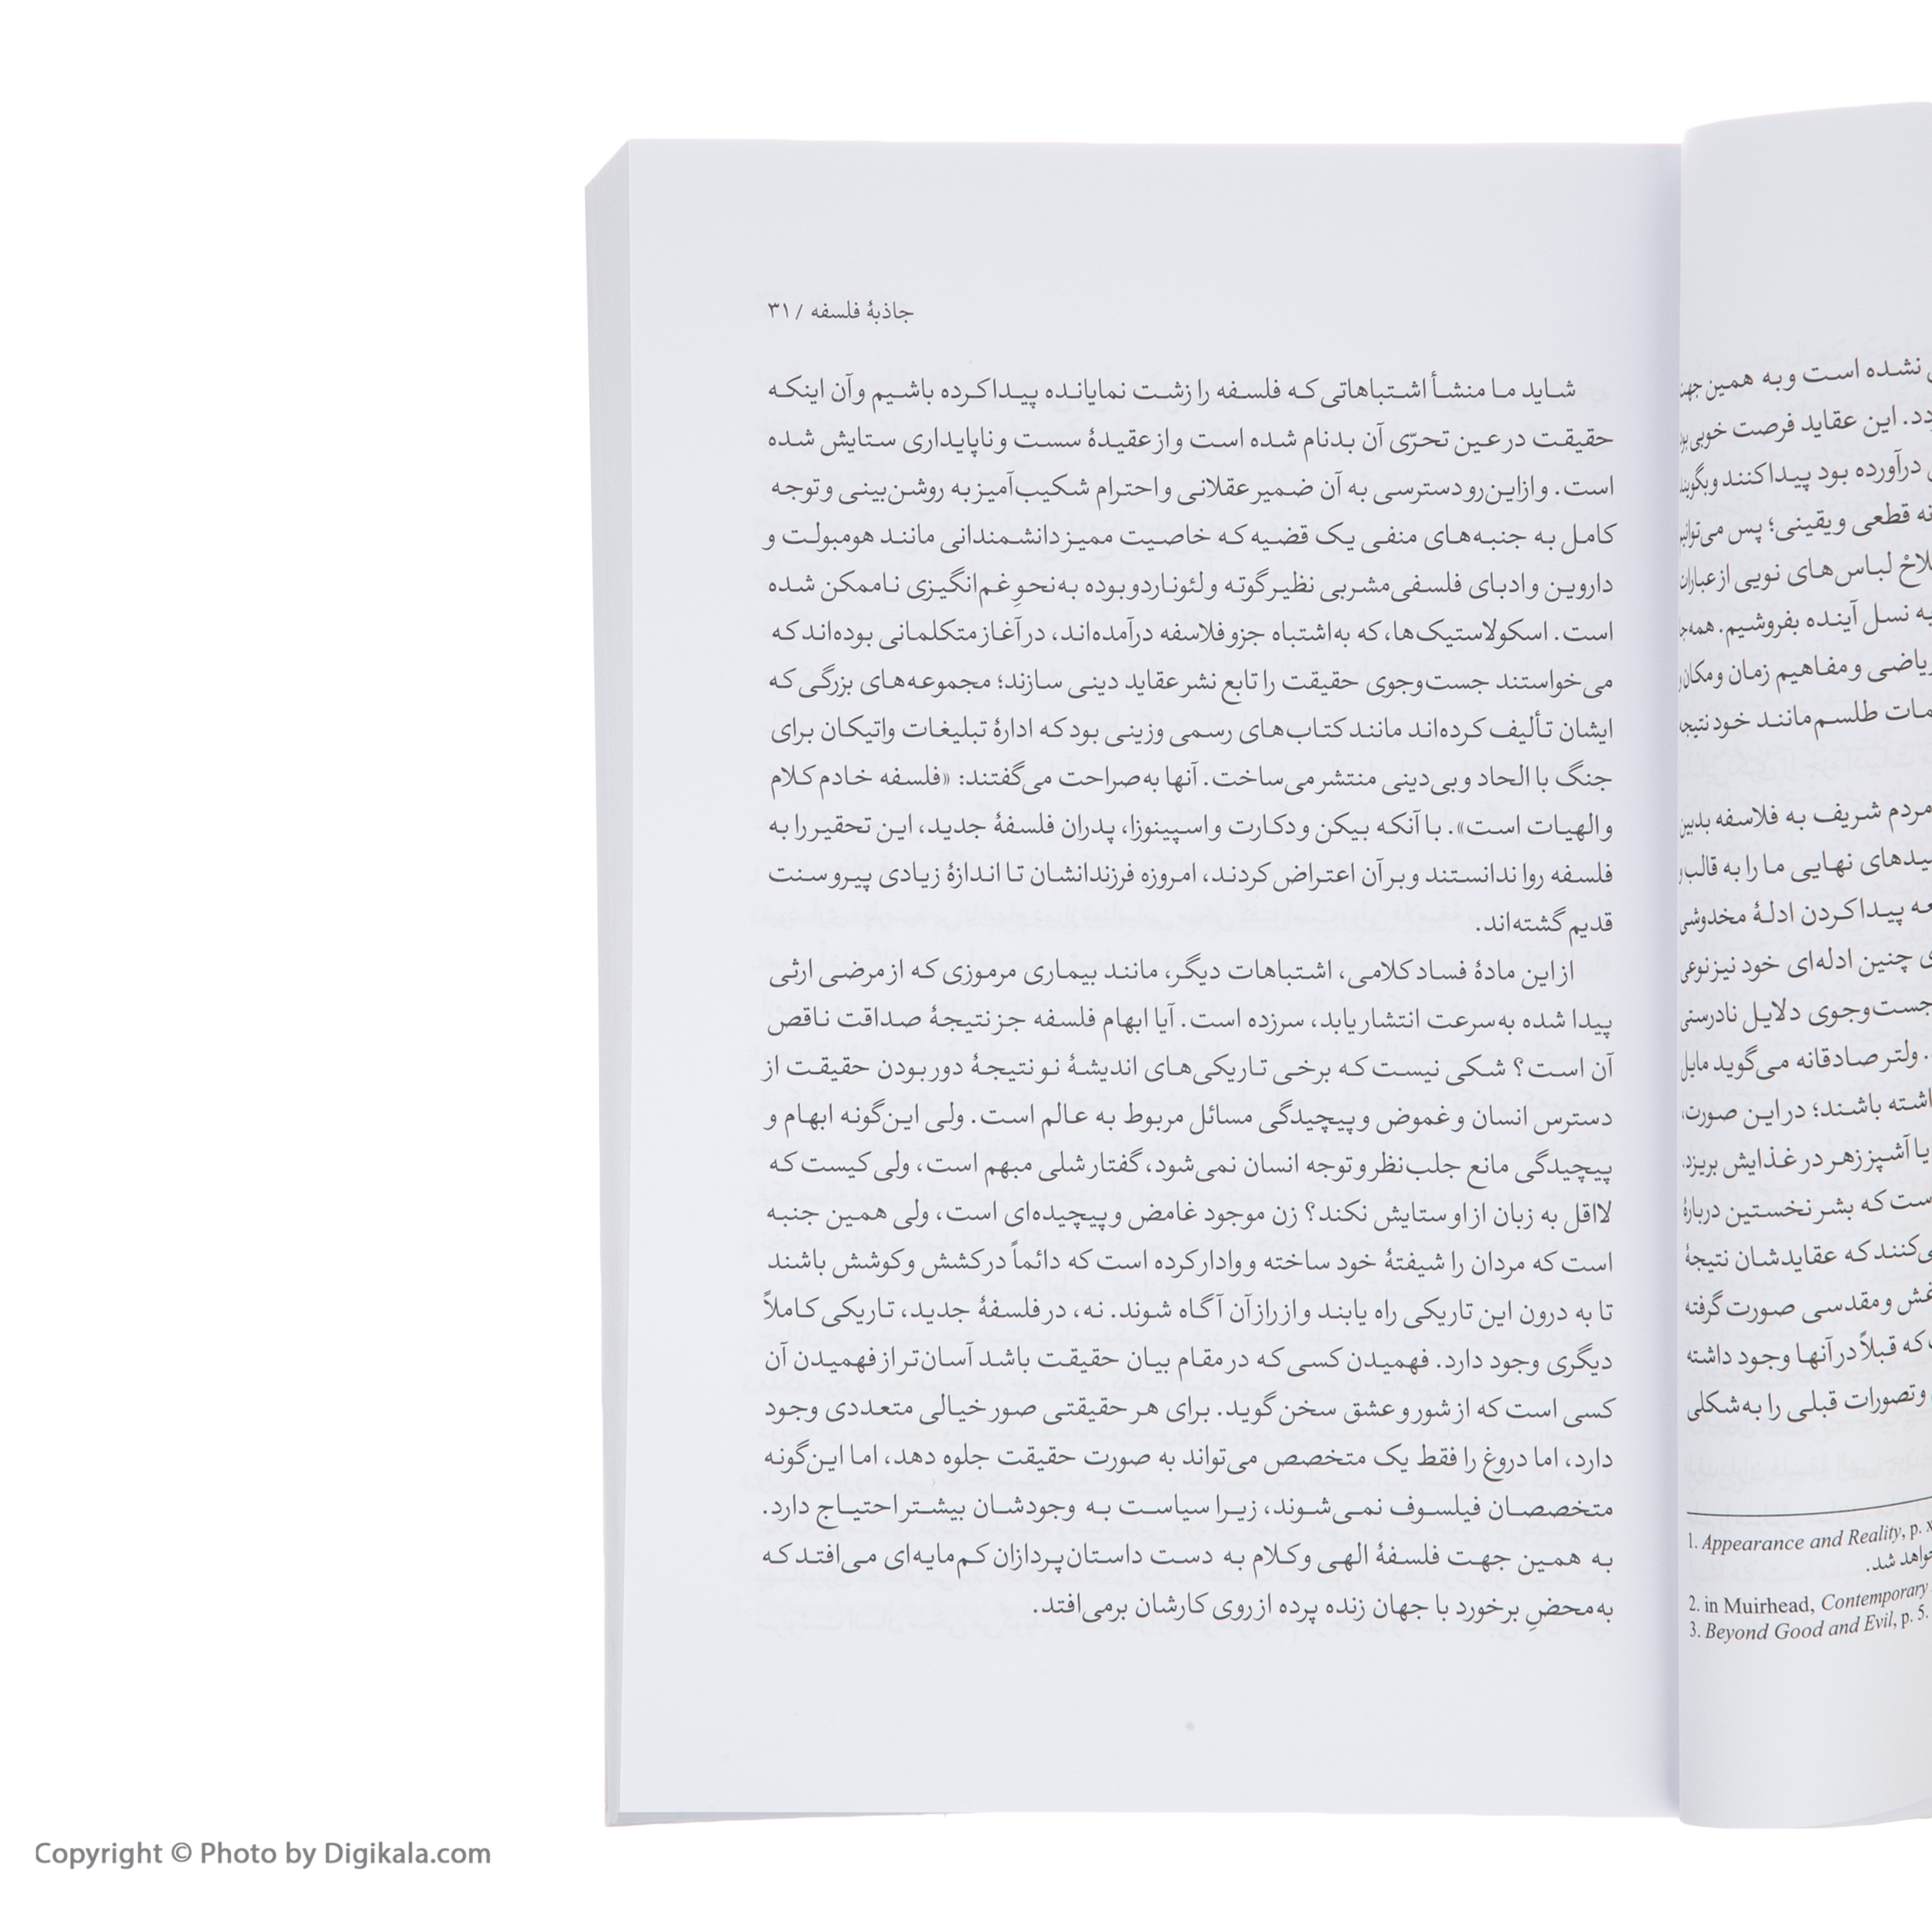 نشده است و به همین جهت
این عقاید فرصت خوبی
درآورده بود پیدا کنند و بگویند
نه قطعی و یقینی؛ پس
لباس‌های نویی از عبارات
به نسل آینده بفروشیم. همه‌جا
و مفاهیم زمان و مکان
طلسم‌مانند خود نتیجه
مردم شریف به فلاسفه بدبین
نهایی ما را به قالب
پیدا کردن ادلهٔ مخدوشی
چنین ادله‌ای خود نیز نوعی
جست‌وجوی دلایل نادرستی
ولتر صادقانه می‌گوید مایل
باشند؛ در این صورت،
یا آشپز زهر در غذایش بریزد.
است که بشر نخستین دربارهٔ
که عقایدشان نتیجهٔ
و مقدسی صورت گرفته
که قبلاً در آنها وجود داشته
و تصورات قبلی را به‌شکلی
1. Appearance and Reality, p.
خواهد شد.
2. in Muirhead, Contemporary
3. Beyond Good and Evil, p. 5.
جاذبهٔ فلسفه / ۳۱
شاید ما منشأ اشتباهاتی که فلسفه را زشت نمایانده پیدا کرده باشیم و آن اینکه
حقیقت در عین تحرّی آن بدنام شده است و از عقیدهٔ سست و ناپایداری ستایش شده
است. و ازاین‌رو دسترسی به آن ضمیر عقلانی و احترام شکیب‌آمیز به روشن‌بینی و توجه
کامل به جنبه‌های منفی یک قضیه که خاصیت ممیز دانشمندانی مانند هومبولت و
داروین و ادبای فلسفی‌مشربی نظیر گوته و لئوناردو بوده به‌نحوِ غم‌انگیزی ناممکن شده
است. اسکولاستیک‌ها، که به‌اشتباه جزو فلاسفه درآمده‌اند، در آغاز متکلمانی بوده‌اند که
می‌خواستند جست‌وجوی حقیقت را تابع نشر عقاید دینی سازند؛ مجموعه‌های بزرگی که
ایشان تألیف کرده‌اند مانند کتاب‌های رسمی وزینی بود که ادارهٔ تبلیغات واتیکان برای
جنگ با الحاد و بی‌دینی منتشر می‌ساخت. آنها به‌صراحت می‌گفتند: «فلسفه خادم کلام
و الهیات است». با آنکه بیکن و دکارت و اسپینوزا، پدران فلسفهٔ جدید، این تحقیر را به
فلسفه روا ندانستند و بر آن اعتراض کردند، امروزه فرزندانشان تا اندازهٔ زیادی پیرو سنت
قدیم گشته‌اند.
از این مادهٔ فساد کلامی، اشتباهات دیگر، مانند بیماری مرموزی که از مرضی ارثی
پیدا شده به‌سرعت انتشار یابد، سرزده است. آیا ابهام فلسفه جز نتیجهٔ صداقت ناقص
آن است؟ شکی نیست که برخی تاریکی‌های اندیشهٔ نو نتیجهٔ دور بودن حقیقت از
دسترس انسان و غموض و پیچیدگی مسائل مربوط به عالم است. ولی این‌گونه ابهام و
پیچیدگی مانع جلب‌نظر و توجه انسان نمی‌شود، گفتار شلی مبهم است، ولی کیست که
لااقل به زبان از او ستایش نکند؟ زن موجود غامض و پیچیده‌ای است، ولی همین جنبه
است که مردان را شیفتهٔ خود ساخته و وادار کرده است که دائماً در کشش و کوشش باشند
تا به درون این تاریکی راه یابند و از راز آن آگاه شوند. نه، در فلسفهٔ جدید، تاریکی کاملاً
دیگری وجود دارد. فهمیدن کسی که در مقام بیان حقیقت باشد آسان‌تر از فهمیدن آن
کسی است که از شور و عشق سخن گوید. برای هر حقیقتی صور خیالی متعددی وجود
دارد، اما دروغ را فقط یک متخصص می‌تواند به صورت حقیقت جلوه دهد، اما این‌گونه
متخصصان فیلسوف نمی‌شوند، زیرا سیاست به وجودشان بیشتر احتیاج دارد.
به همین جهت فلسفهٔ الهی و کلام به دست داستان‌پردازان کم‌مایه‌ای می‌افتد که
به‌محضِ برخورد با جهان زنده پرده از روی کارشان برمی‌افتد.
Copyright © Photo by Digikala.com